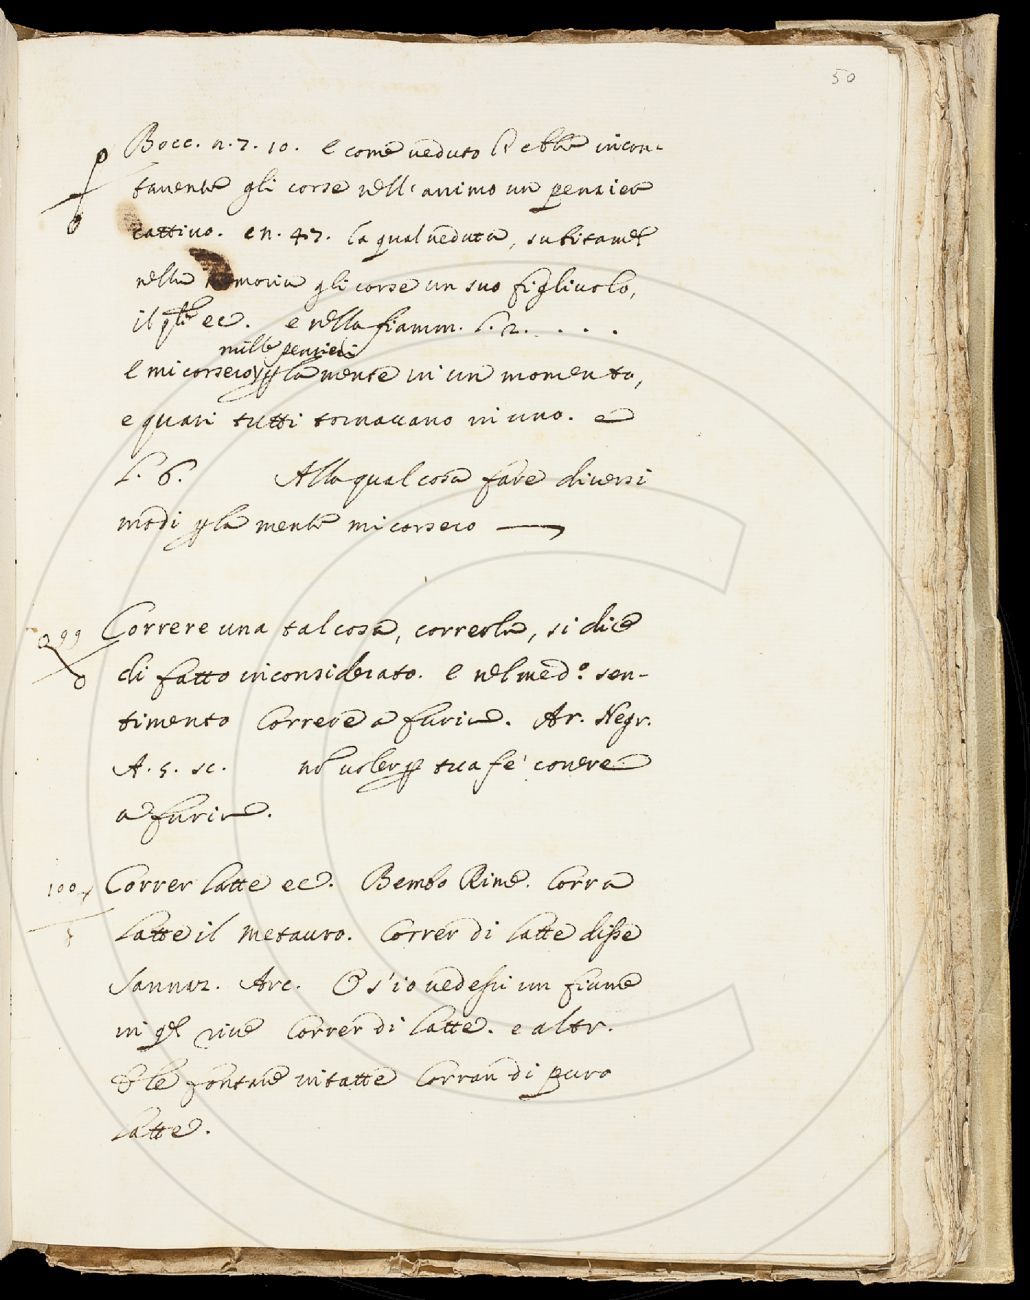 50
Bocc. n. 7. 10. e come veduto l'ebbe incon-
tanente gli corse nell'animo un pensier
cattivo. e n. 47. la qual veduta, subitamte
nella memoria gli corse un suo figliuolo,
il qle ec. e nella fiamm. l. 2. . . . .
mille pensieri
e mi corsero p la mente in un momento,
e quasi tutti tornavano in uno. e
l. 6. Alla qual cosa fare diversi
modi p la mente mi corsero —
99 Correre una tal cosa, correrla, si dice
di fatto inconsiderato. e nel med.o sen-
timento Correre a furia. Ar. Negr.
A. 5. sc. no voler p tua fe' correre
a furia.
100 Correr latte ec. Bembo Rime. Corra
latte il Metauro. Correr di latte disse
Sannaz. Arc. O s'io vedessi un fiume
in qste rive Correr di latte. e altr.
E le fontane intatte Corran di puro
latte.